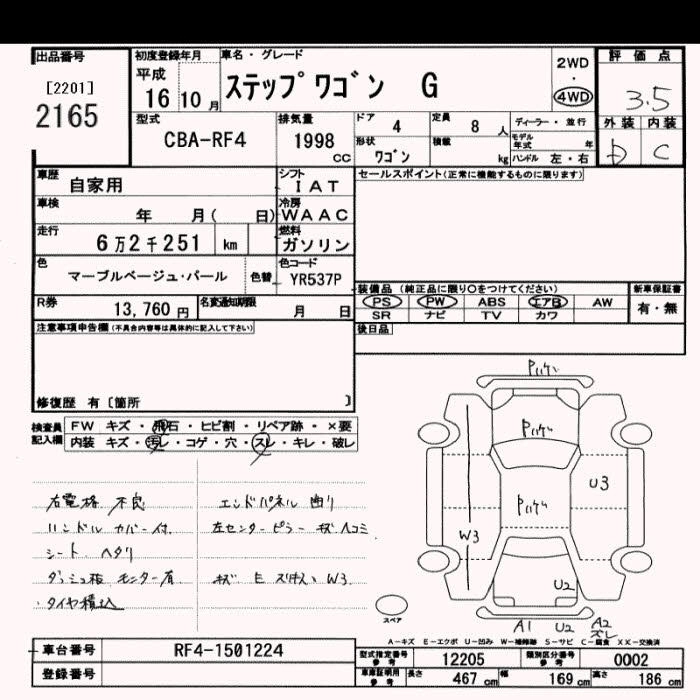 出品番号
[2201]
2165
初度登録年月
平成
16 10 月
車名・グレード
ステップワゴン G
2WD
・
4WD
評価点
3.5
外装 内装
b C
型式
CBA-RF4
排気量
1998
CC
ドア 4
定員 8 人
ディーラー・並行
形状 ワゴン
積載 kg
モデル年式 年
ハンドル 左・右
車歴 自家用
シフト IAT
セールスポイント(正常に機能するものに限ります)
車検 年 月( 日)
冷房 WAAC
走行 6万2千251 km
燃料 ガソリン
色 マーブルベージュ・パール
色替
色コード YR537P
装備品(純正品に限り○をつけてください)
新車保証書
有・無
PS PW ABS エアB AW
SR ナビ TV カワ
R券 13,760円
名変通知期限 月 日
後日品
注意事項申告欄(不具合内容等は具体的に記入して下さい)
修復歴 有〔箇所 〕
検査員記入欄
FW キズ・飛石・ヒビ割・リペア跡・×要
内装 キズ・汚レ・コゲ・穴・スレ・キレ・破レ
右電格 不良
ハンドルカバー付.
シート ヘタリ
ダッシュ板 モニター有
・タイヤ積込
エンドパネル 曲リ
左センターピラー キズ ヘコミ
キズ E W3
Pハゲハ
Pハゲハ
Pハゲハ
U3
W3
U2
A1 U2 A2
ズレ
スペア
A-キズ E-エクボ U-凹み W-補修跡 S-サビ C-腐食 XX-交換済
車台番号 RF4-1501224
登録番号
型式指定番号 参考 12205
類別区分番号 参考 0002
車庫証明用 参考 長さ 467 cm 幅 169 cm 高さ 186 cm